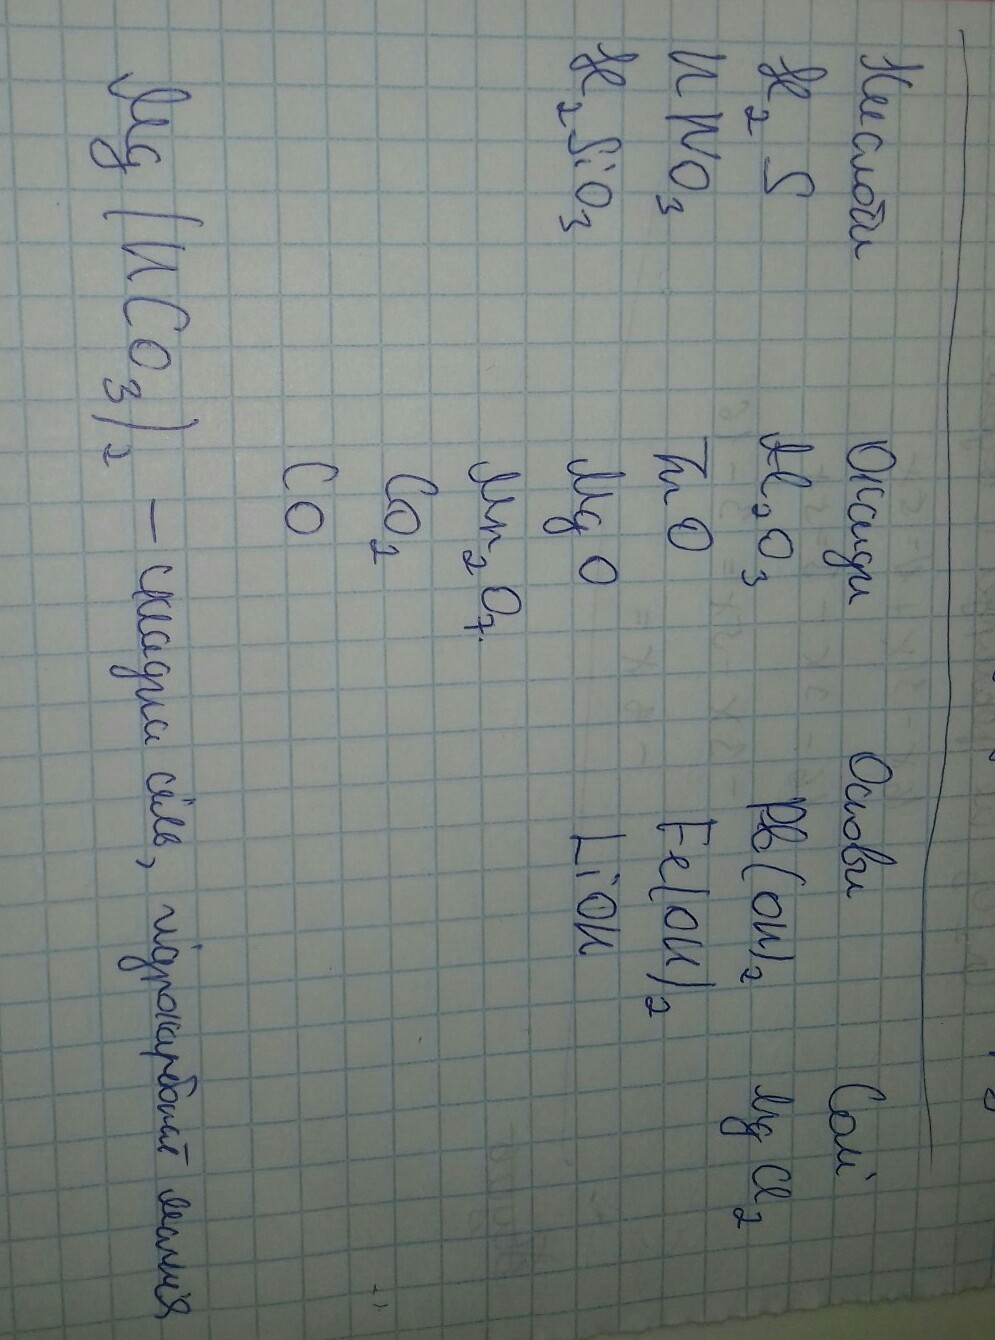 Кислоти Оксиди Основи Солі
H₂S Al₂O₃ Pb(OH)₂ MgCl₂
HNO₃ ZnO Fe(OH)₂
H₂SiO₃ MgO LiOH
Mn₂O₇.
CO₂
CO
Mg(HCO₃)₂ – складна сіль, гідрокарбонат магнія